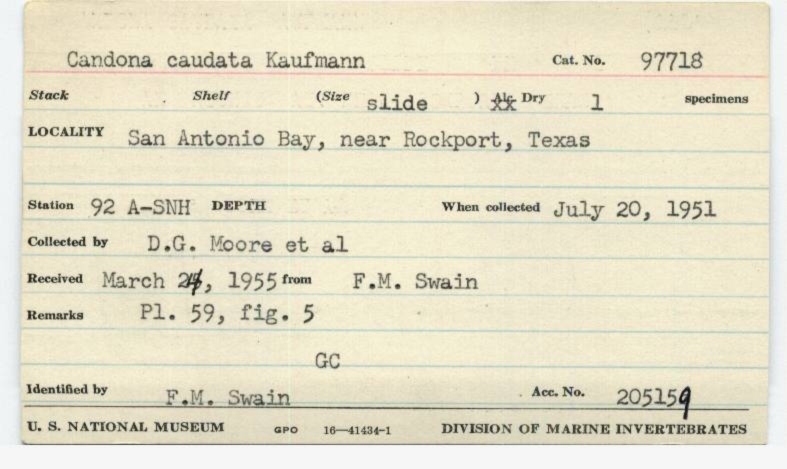 Candona caudata Kaufmann Cat. No. 97718
Stack Shelf (Size slide ) Alc. Dry 1 specimens
LOCALITY San Antonio Bay, near Rockport, Texas
Station 92 A-SNH DEPTH When collected July 20, 1951
Collected by D.G. Moore et al
Received March 24, 1955 from F.M. Swain
Remarks Pl. 59, fig. 5
GC
Identified by F.M. Swain Acc. No. 205159
U. S. NATIONAL MUSEUM GPO 16—41434-1 DIVISION OF MARINE INVERTEBRATES